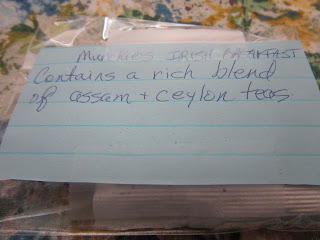 Munchies IRISH BREAKFAST
Contains a rich blend
of assam + ceylon teas